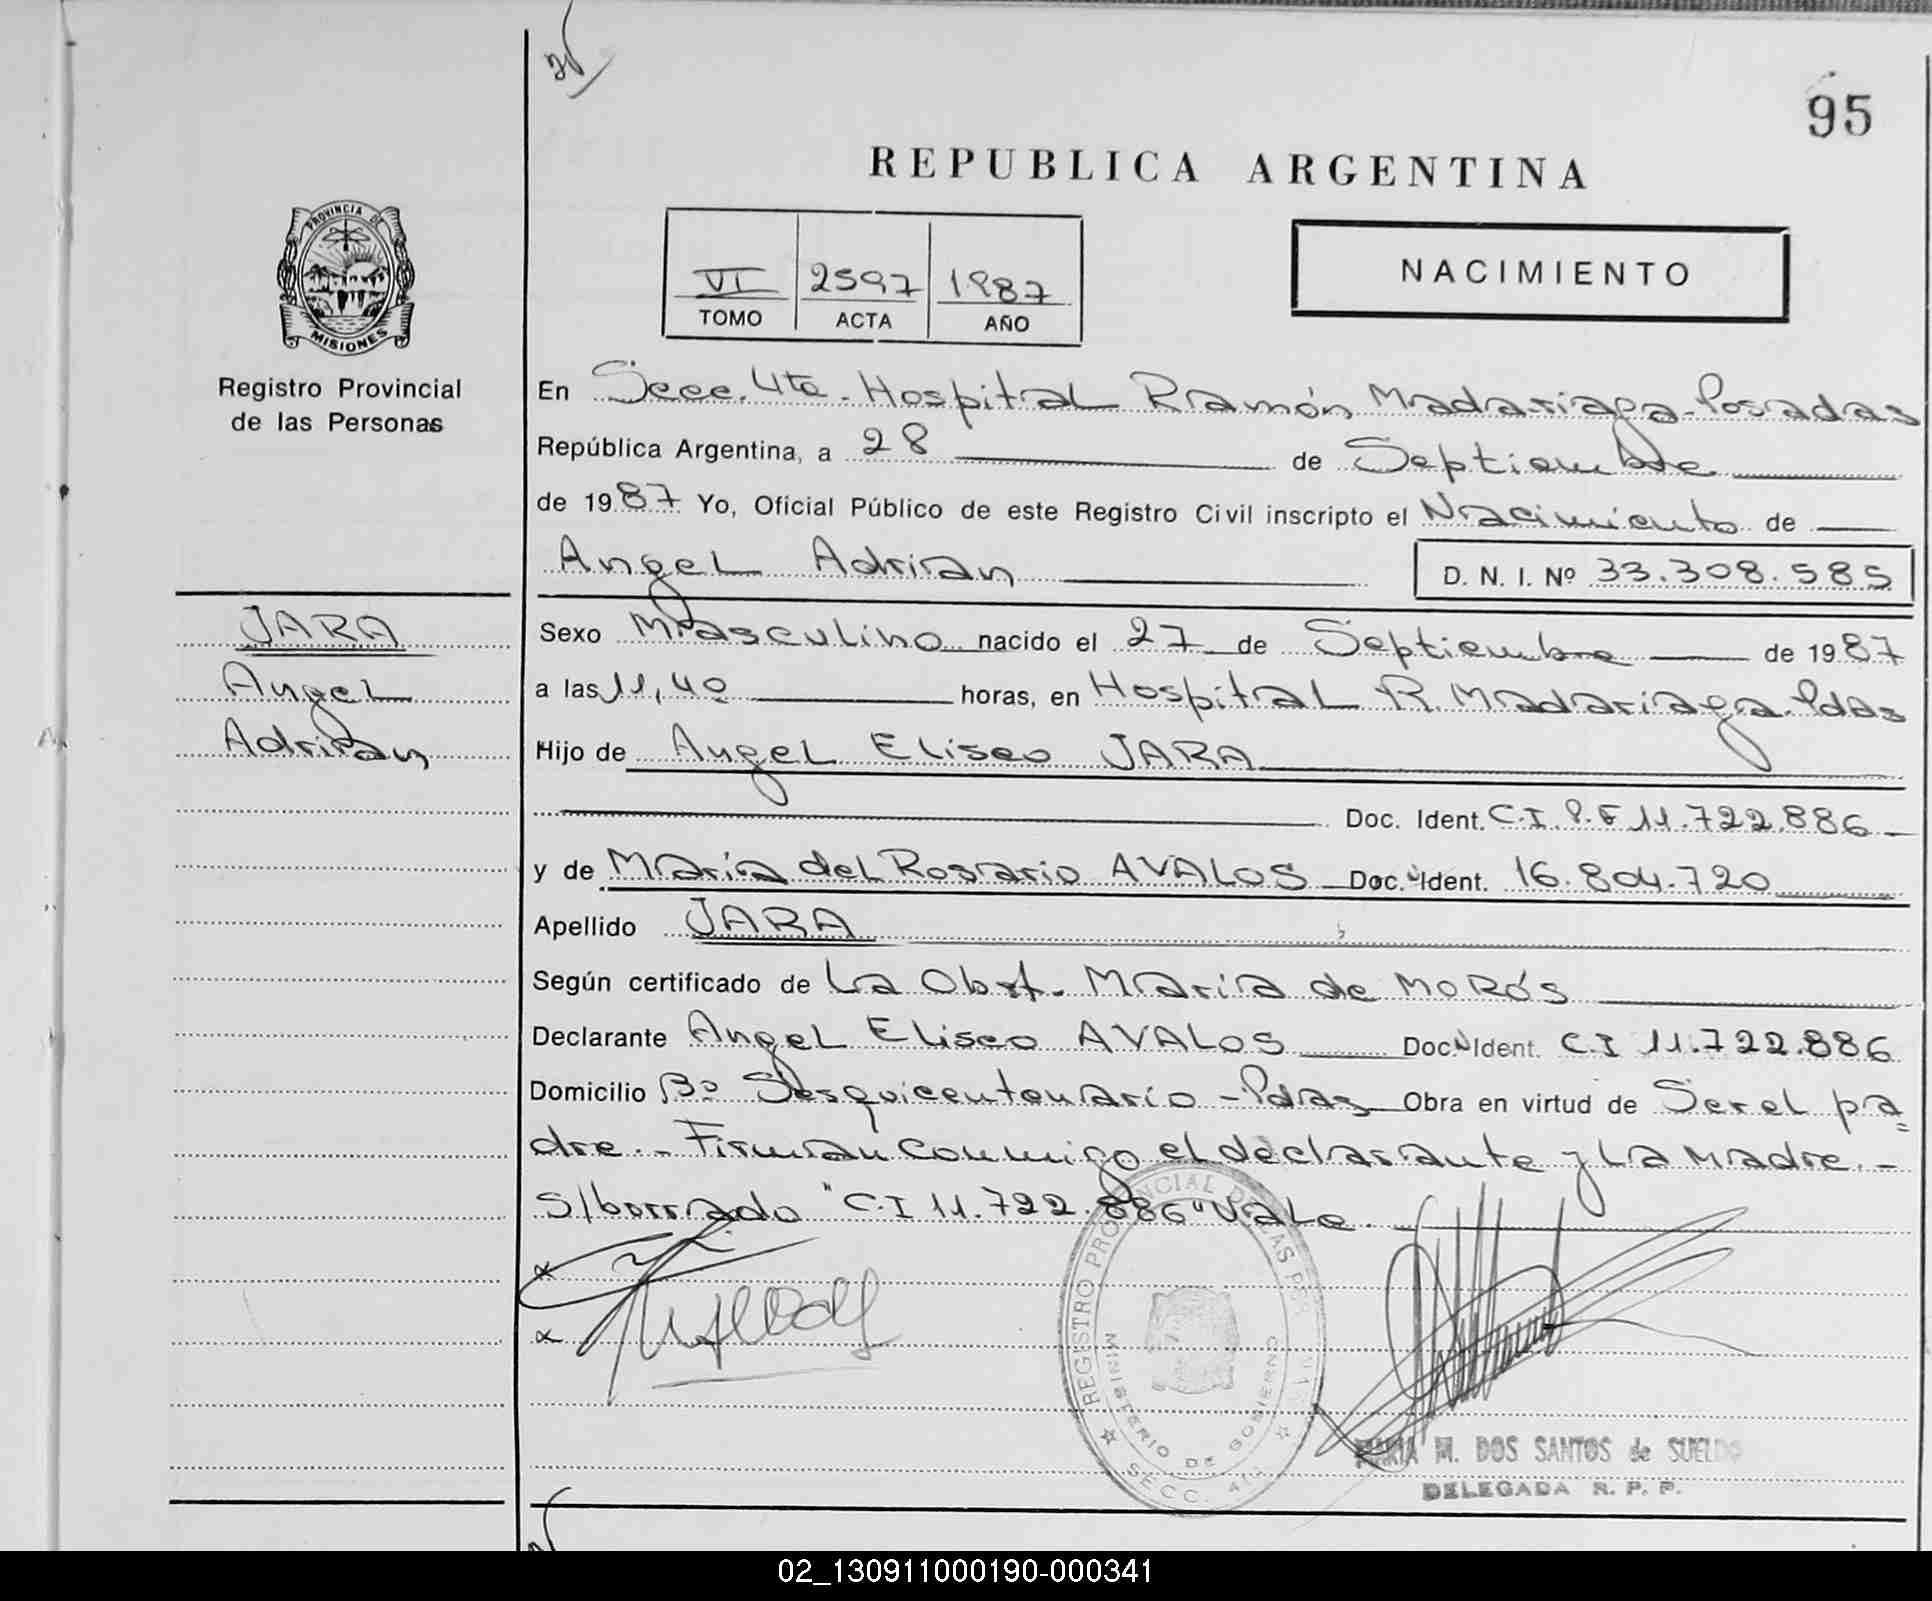 95
REPUBLICA ARGENTINA
PROVINCIA DE
MISIONES
Registro Provincial
de las Personas
VI 2597 1987
TOMO ACTA AÑO
NACIMIENTO
En Secc. 4ta. Hospital Ramón Madariaga-Posadas
República Argentina, a 28 de Septiembre
de 1987 Yo, Oficial Público de este Registro Civil inscripto el Nacimiento de
Angel Adrian D. N. I. Nº 33.308.585
JARA
Angel
Adrian
Sexo Masculino nacido el 27 de Septiembre de 1987
a las 11,40 horas, en Hospital R. Madariaga. Pdas
Hijo de Angel Eliseo JARA
Doc. Ident. C.I. P.F 11.722.886
y de María del Rosario AVALOS Doc. Ident. 16.804.720
Apellido JARA
Según certificado de La Obst. María de MORÓS
Declarante Angel Eliseo AVALOS Doc. Ident. C.I 11.722.886
Domicilio Bº Sesquicentenario - Pdas Obra en virtud de Ser el pa=
dre.- Firman conmigo el declarante y la Madre.-
s/borrado "C.I 11.722.886" Vale.
REGISTRO PROVINCIAL DE LAS PER
MINISTERIO DE GOBIERNO
SECC. 4ta
MARIA M. DOS SANTOS de SUELDO
DELEGADA R. P. P.
02_130911000190-000341